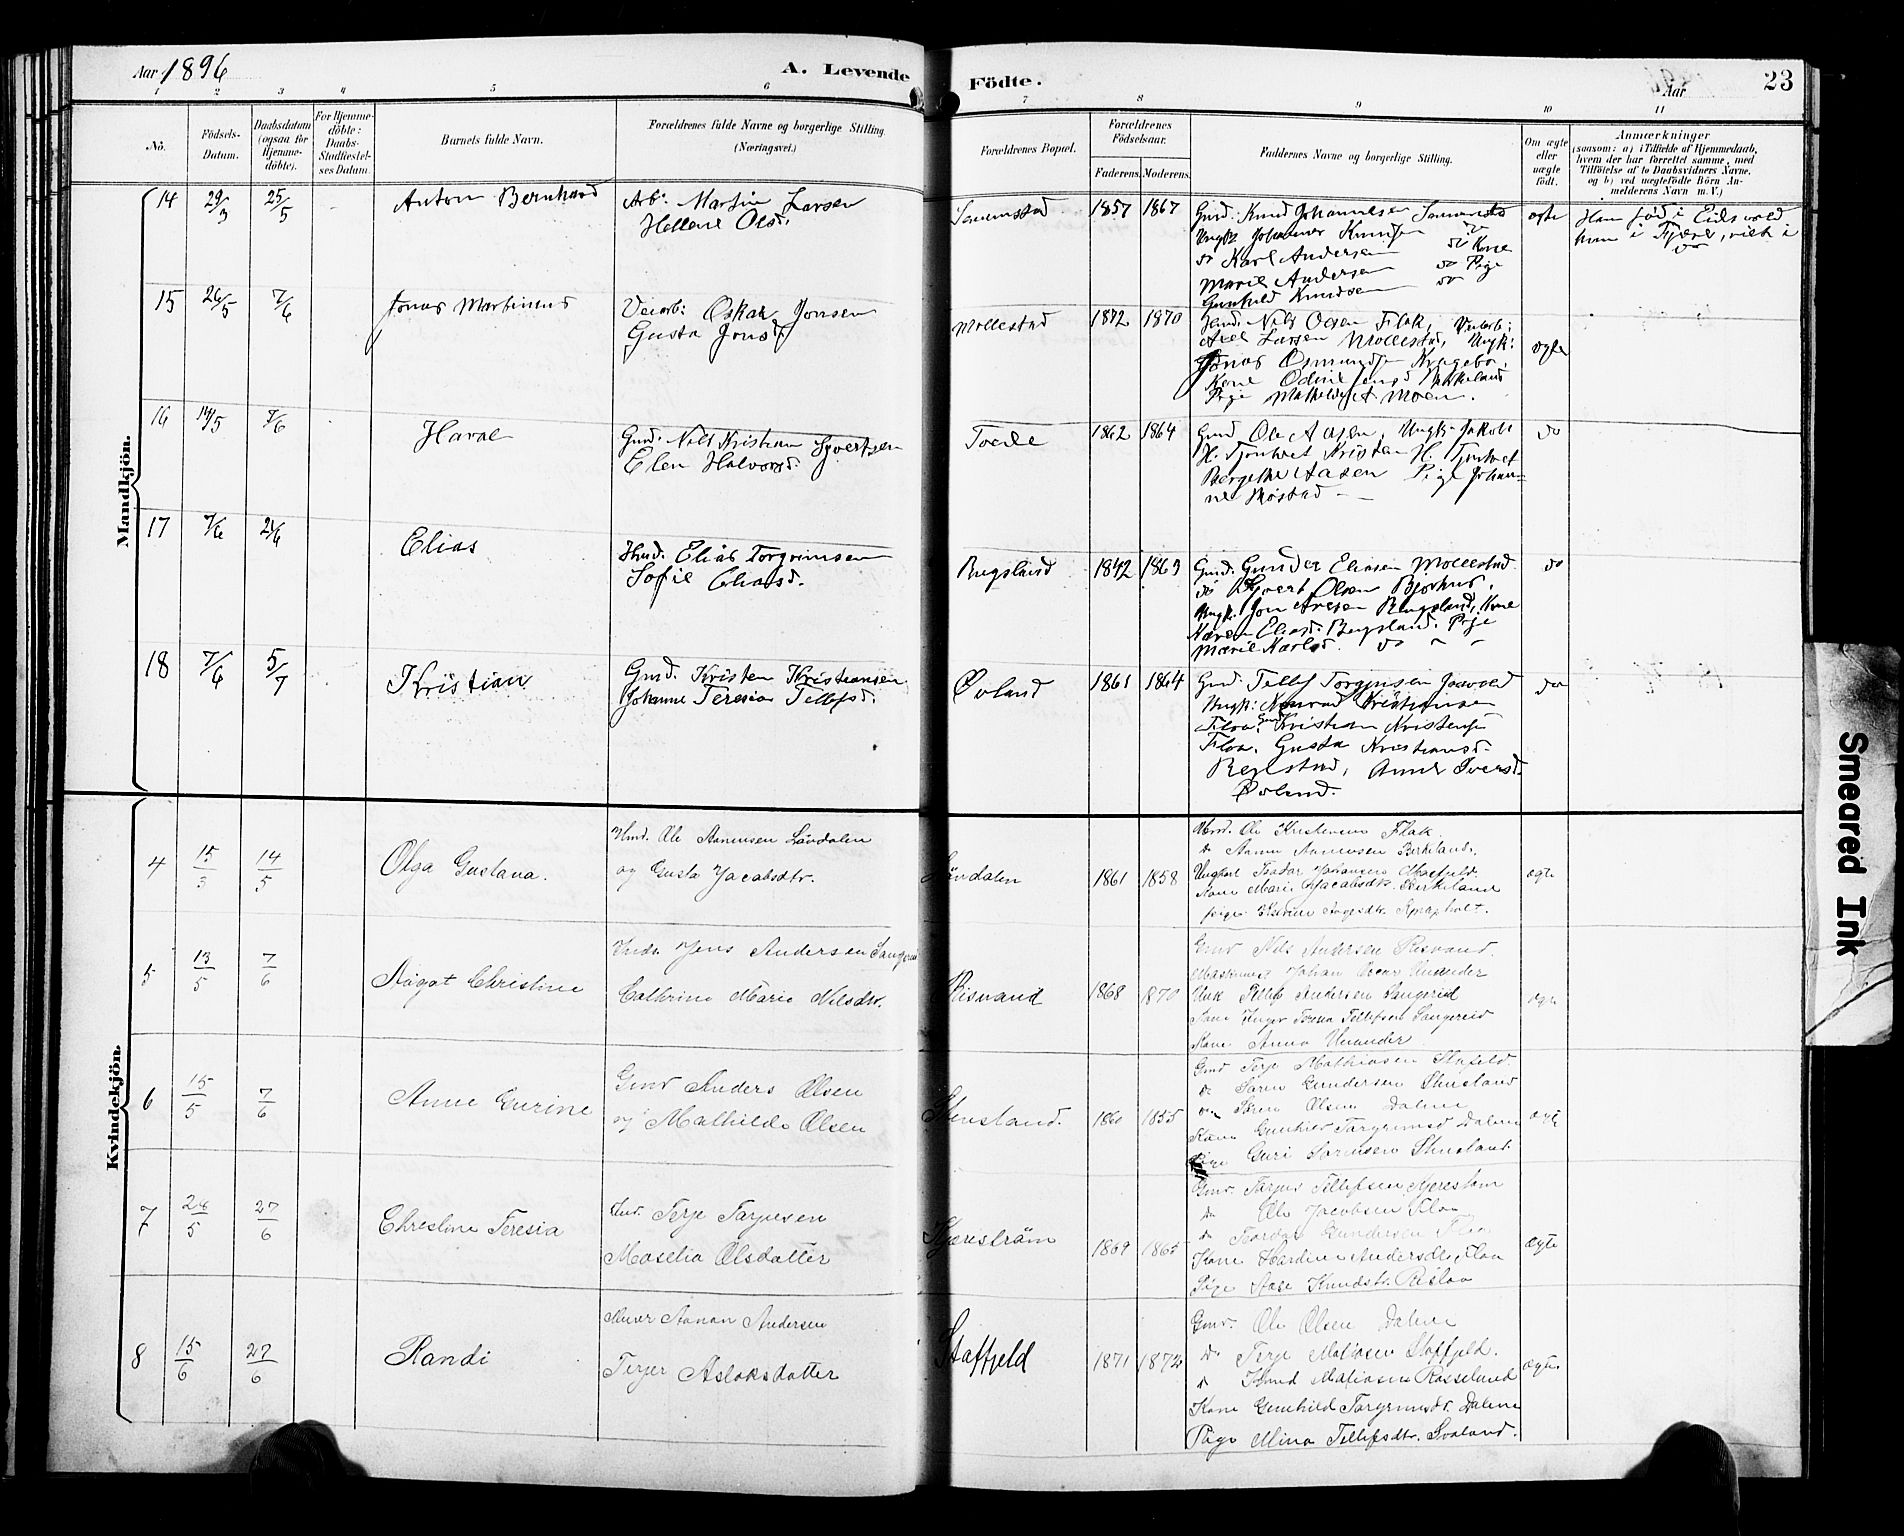 Aar 1896
A. Levende Födte.
Aar
23
1 2 3 4 5 6 7 8 9 10 11
No.
Födsels-Datum.
Daabsdatum (ogsaa for Hjemme-döbte).
For Hjemme-döbte: Daabs-Stadfæstel-ses Datum.
Barnets fulde Navn.
Forældrenes fulde Navne og borgerlige Stilling. (Næringsvei.)
Forældrenes Bopæl.
Forældrenes Födselsaar.
Faderens. Moderens.
Faddernes Navne og borgerlige Stilling.
Om ægte eller uægte født.
Anmærkninger
(saasom: a) i Tilfælde af Hjemmedaab,
hvem der har forrettet samme, med
Tilföielse af to Daabsvidners Navne,
og b) ved uægtefödte Börn An-
melderens Navn m. V.)
Mandkjön.
14 29/3 25/5 Anton Bernhard
Arb: Martin Larsen
Hellene Olsd.
1857 1867
Gmd: Knud Johannesen
Ungk: Johannes Knudsen do
do Karl Andersen do Kone
Marie Andersen do Pige
Gunhild Knudsen do
ægte
Han fød i Eidsvold
hun i Fjære, viet i
do
15 26/5 7/6 Jonas Martinius
Veiarb: Oskar Jonsen
Gusta Jonsd.
Mollestad 1872 1870
Gmd. Nils Olsen Flak,
Axel Larsen Mollestad, Ungk:
Jonas Osmundsen
Kone Odine Jensd. Birkeland
Pige Mathilde A Moen.
ægte
16 14/5 7/6 Harae
Gmd. Nils Kristian Syvertsen
Elen Halvorsd.
Tvede 1862 1864
Gmd Ole Aasen, Ungk. Jakob
H. Tjønhvet Kristian H. Tjønhvet
Bergithe Aasen Pige Johan=
ne
do
17 7/6 21/6 Elias
Hmd. Elias Torgrimsen
Sofie Eliasd.
Bugsland 1842 1863
Gmd. Gunder Eliasen Mollestad
do Syvert Olsen Bjorhus,
Ungk. Jon Aresen Bugsland, Kone
Karen Eliasd. Bugsland. Pige
Marie Karlsd. do
do
18 7/6 5/7 Kristian
Gmd. Kristen Kristiansen
Johanne Teresia Tellefsd.
Øvland 1861 1864
Gmd. Tellef Torgersen
Ungk: Konrad Kristiansen
Floa, Gmd Kristian Kristensen
Floa, Gusta Kristiansd.
Reylstad, Anne Iversd.
Øvland.
do
Kvindekjön.
4 15/3 14/5 Olga Gustava.
Hmd. Ole Aanensen Løvdalen
og Gusta Jacobsdtr.
Løvdalen 1861 1858
Hmd. Ole Kristensen Flak.
do Aanen Aanensen Birkeland.
Ungkarl Teodor Johansen
Kone Marie Jacobsdtr. Birkeland
pige
ægte
5 13/5 7/6 Aagot Christine
Inds. Jens Andersen Sangereid
Cathrine Marie Nilsdtr.
Risvand 1868 1870
Gmd Nils Andersen Risvand.
Maskinmst Johan Oscar Unander
Unk Tellef Andersen Sangereid
Kone Inger Teresia Tellefsen Sangereid
Kone Anna Unander
ægte
6 15/5 7/6 Anne Gurine
Gmd Anders Olsen
og Mathilde Olsen
Stensland. 1860 1855
Gmd Terje Mathiasen Stafjeld.
do Søren Gundersen Stensland
do Søren Olsen Dalene
Kone Gunhild Torgrimsd Dalene
Pige Guri Sørensen Stensland.
ægte
7 28/5 27/6 Christine Teresia
Ind. Terje Tarjesen
Maselia Olsdatter
Kjærestrøm 1869 1865
Gmd. Tarjus Tellefsen Kjærestrøm
do Ole Jacobsen Floa
do Teodor Gundersen Floa
Kone Hardine Andersdtr, Floa
Pige Aase Knudstr. Risløa
ægte
8 15/6 27/6 Randi
Aanon Andersen
Terjer Aslaksdatter
Stafjeld 1871 1872
Gmd. Ole Olsen Dalene
do Terje Matiasen Staffjeld.
do Knud Matiasen Rosseland
Kone Gunhild Torgrimsdt. Dalene
Pige Mina Tellefsdtr. Svaland.
ægte
Smeared Ink